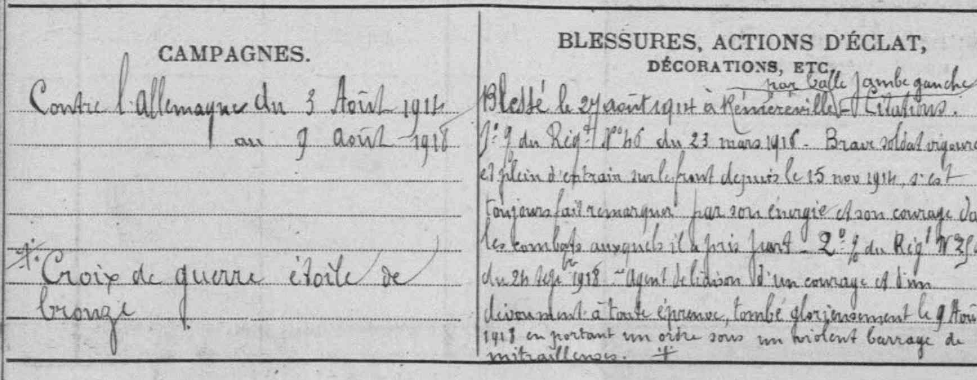 CAMPAGNES.
Contre l'Allemagne du 3 Août 1914
au 9 août 1918
+: Croix de guerre étoile de
bronze
BLESSURES, ACTIONS D'ÉCLAT,
DÉCORATIONS, ETC.
par balle jambe gauche
Blessé le 27 août 1914 à Rémereville - Citations.
1° O/ du Régt N° 46 du 23 mars 1916 - Brave soldat vigoure
et plein d'entrain sur le front depuis le 15 nov 1914, s'est
toujours fait remarquer par son énergie et son courage da
les combats auxquels il a pris part - 2° O/ du Régt
du 24 sepbre 1918 - agent de liaison d'un courage et d'un
dévoument à toute épreuve, tombé glorieusement le 9 Aou
1918 en portant un ordre sous un violent barrage de
mitrailleuses. +